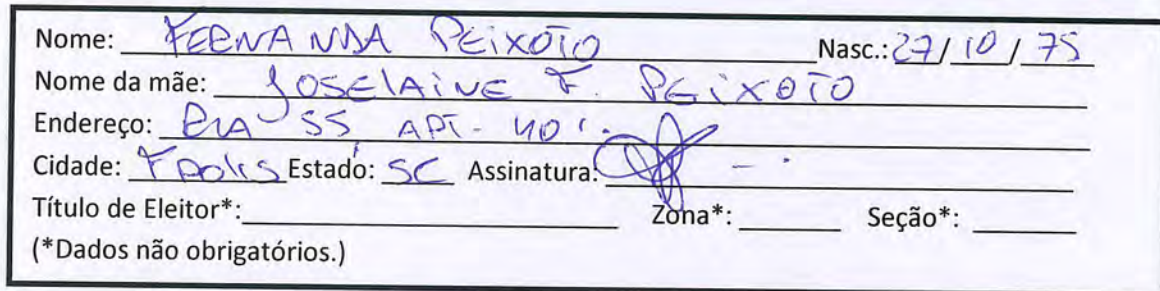 Nome: FERNANDA PEIXOTO Nasc.: 27/10/75
Nome da mãe: JOSELAINE F. PEIXOTO
Endereço: 55 APT. 401.
Cidade: FPOLIS Estado: SC Assinatura:
Título de Eleitor*: Zona*: Seção*:
(*Dados não obrigatórios.)